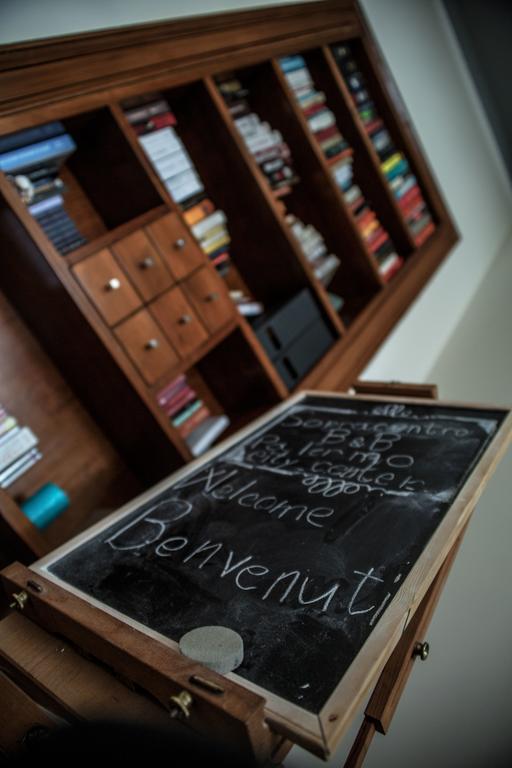 Sopracentro
B&B
Palermo
City center
Welcome
Benvenuti